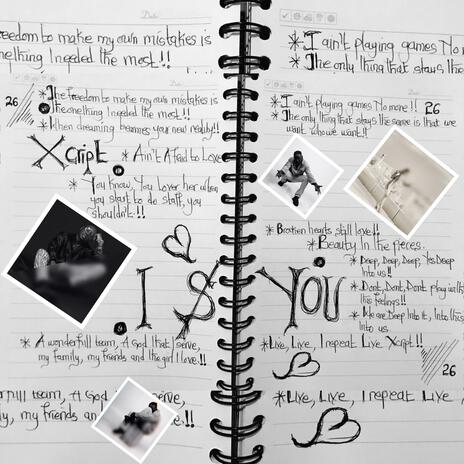 Date
Freedom to make my own mistakes is
nething I needed the most!!
* The freedom to make my own mistakes is
the onething I needed the most!!
26
* When dreaming becomes your new reality!!
Xcript.
* Ain't Afraid to Love
* You know, You lover her when
you start to do staff, you
shouldn't!!
I S
* A wonderfull team, A God that I serve,
my family, my friends and the girl I love!!
rfull team, A God serve,
y, my friends and e!!
* I ain't playing games No more
* The only thing that stays the
Date
* I ain't playing games No more!!
26
* The only thing that stays the same is that we
want who we want!!
* Broken hearts still love!!
* Beauty In the pieces.
* Deep, Deep, Deep, Yes Deep
Into us!!
* Dont, Dont, Dont play with
the feelings!!
* We are Deep Into it, Into this
Into us
YOU
* Live, Live, I repeat Live Xcript!!
26
* Live, Live, I repeat Live